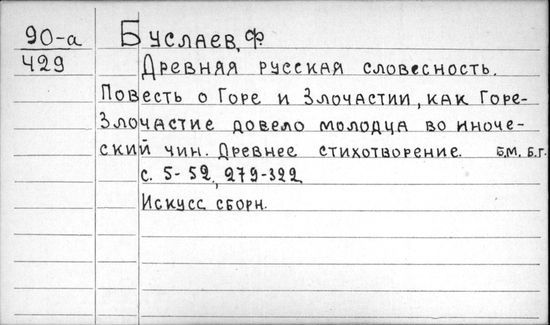 90-а
429
Буслаев, Ф.
Древняя русская словесность.
Повесть о Горе и Злочастии, как Горе-
Злочастие довело молодца во иноче-
ский чин. Древнее стихотворение. Б.М. Б.Г.
с. 5-52, 279-322
Искусс. сборн.